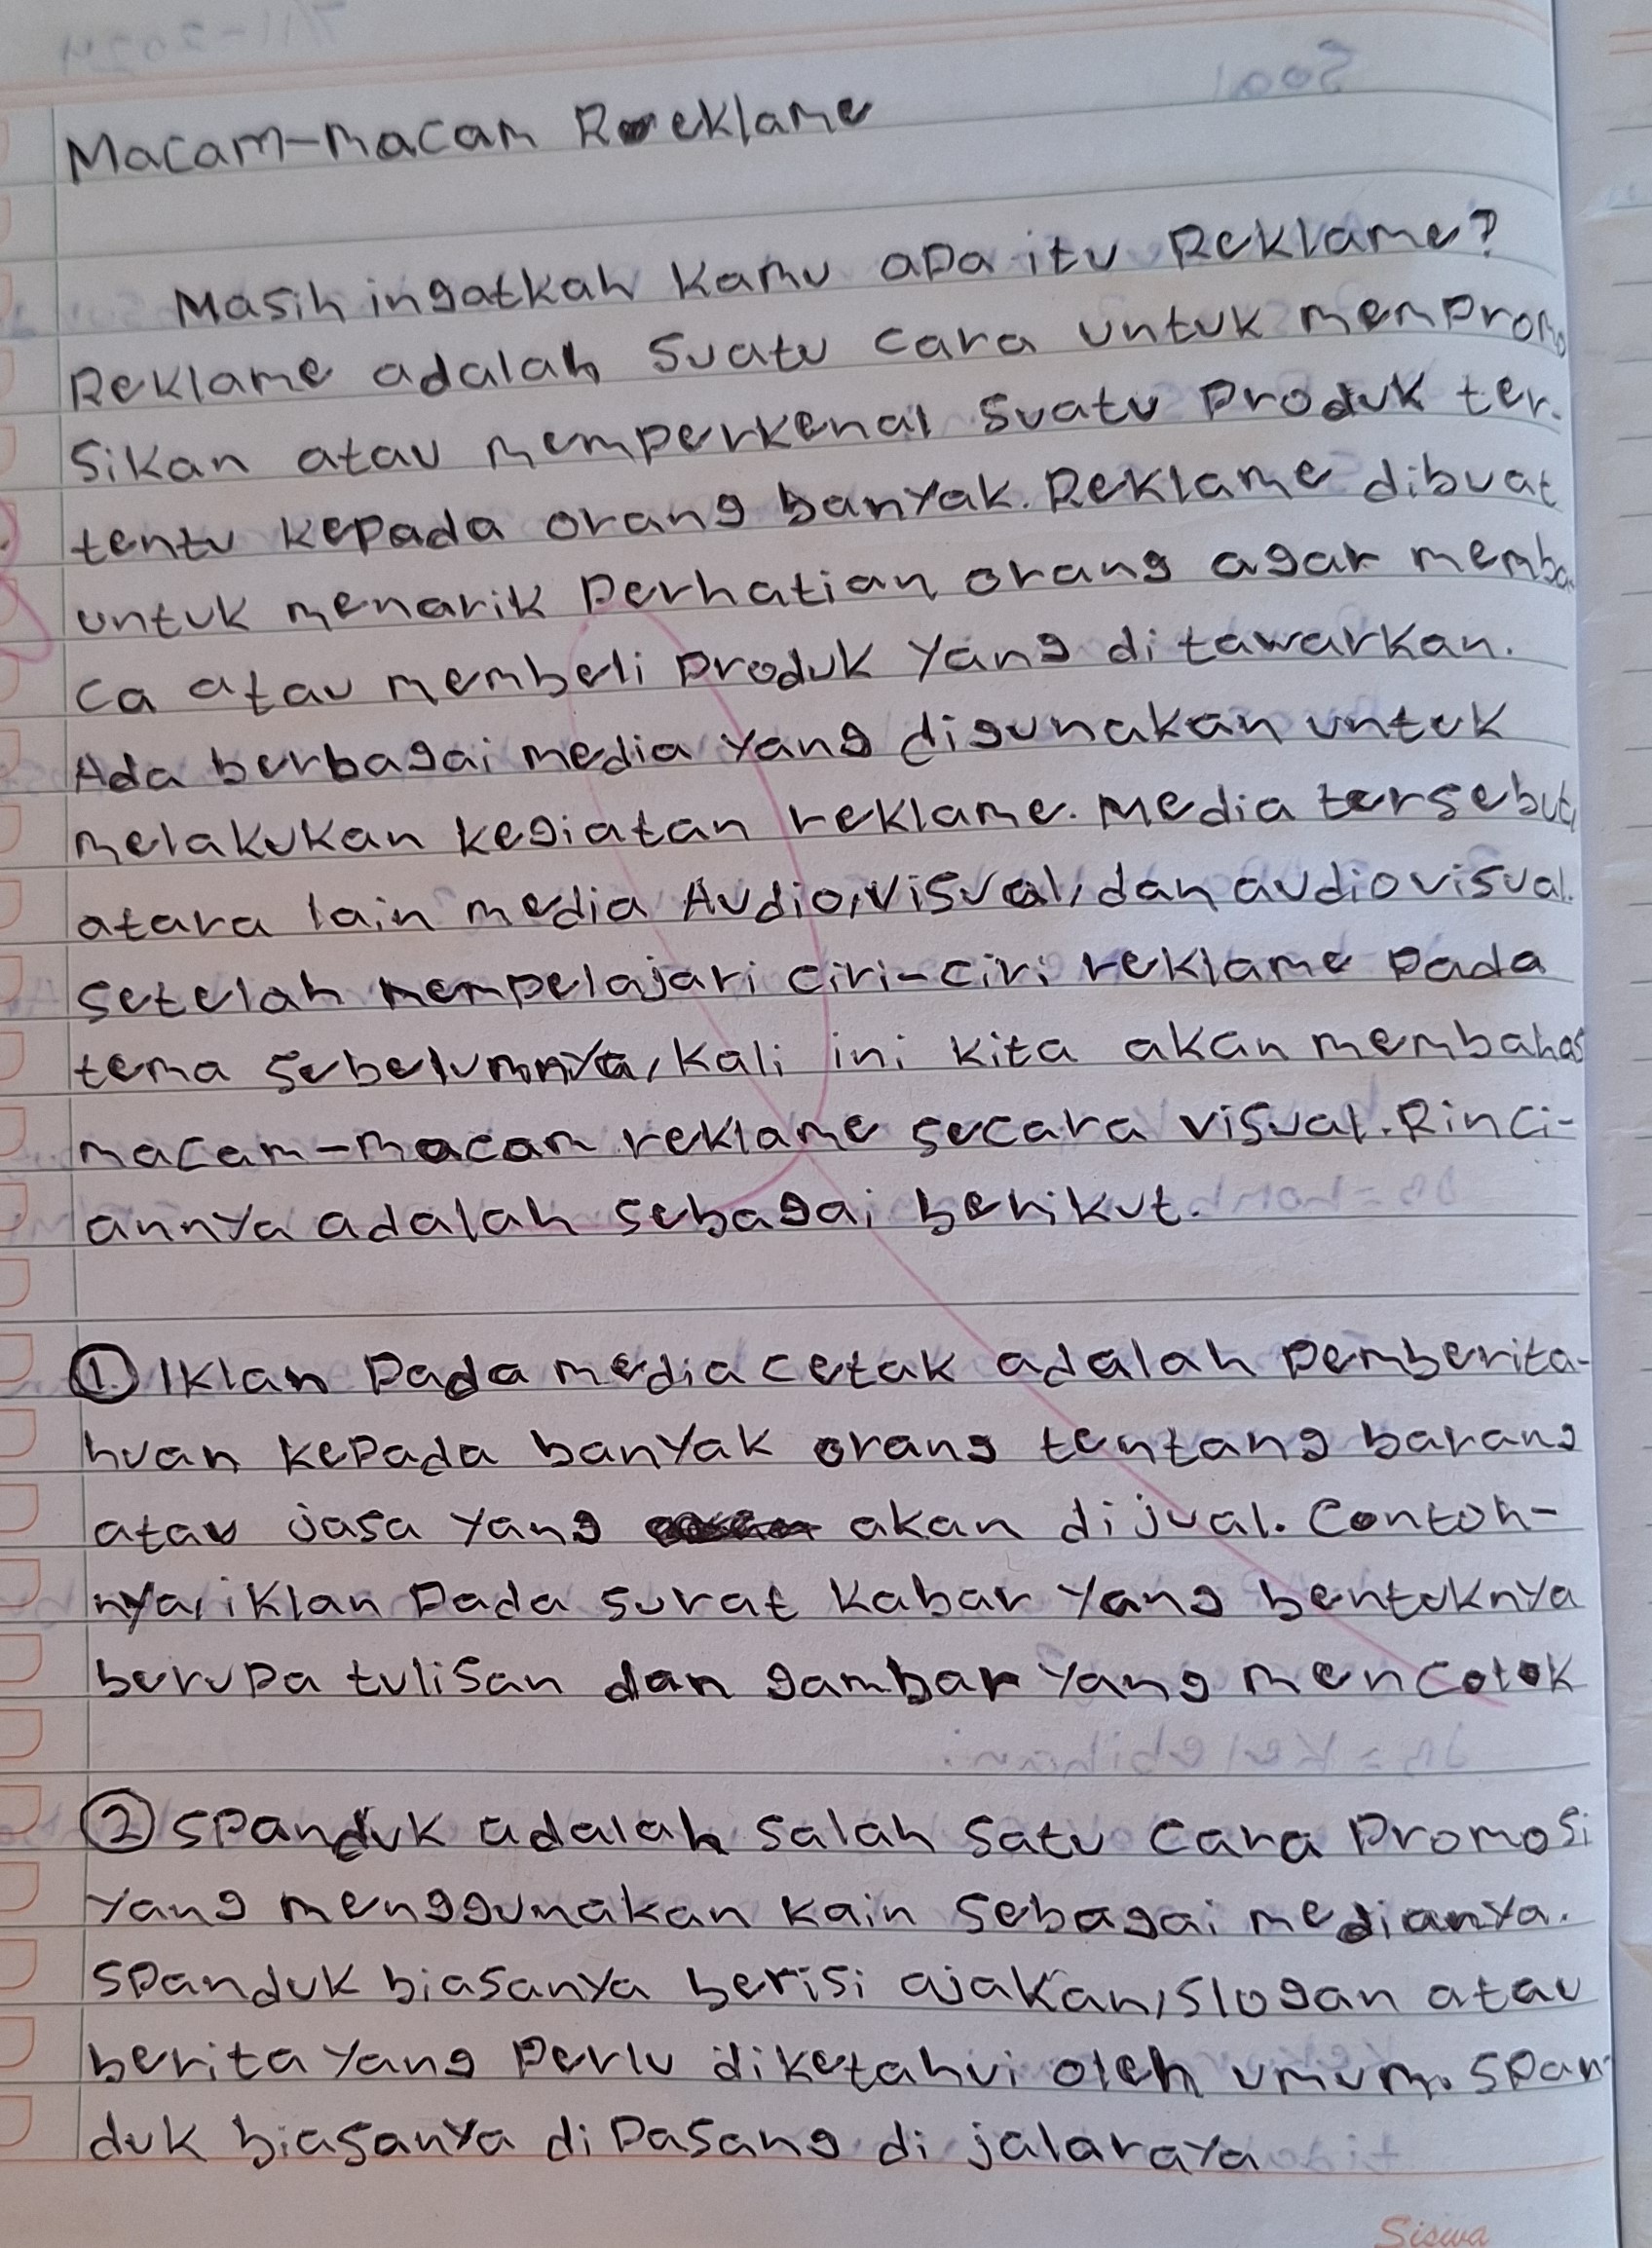 Macam-macam Reklame
Masih ingatkah kamu apa itu Reklame?
Reklame adalah suatu cara untuk mempromo
sikan atau memperkenal suatu produk ter-
tentu kepada orang banyak. Reklame dibuat
untuk menarik perhatian orang agar memba
ca atau membeli produk yang di tawarkan.
Ada berbagai media yang digunakan untuk
melakukan kegiatan reklame. Media tersebut,
atara lain media Audio, visual, dan audiovisual.
setelah mempelajari ciri-ciri reklame pada
tema sebelumnya, kali ini kita akan membahas
macam-macam reklame secara visual. Rinci-
annya adalah sebagai berikut.
1. Iklan pada media cetak adalah pemberita-
huan kepada banyak orang tentang barang
atau jasa yang akan dijual. Contoh-
nya, iklan pada surat kabar yang bentuknya
berupa tulisan dan gambar yang mencolok
2 spanduk adalah salah satu cara promosi
yang menggunakan kain sebagai medianya.
spanduk biasanya berisi ajakan, slogan atau
berita yang perlu diketahui oleh umum. span
duk biasanya di pasang di jalaraya
Siswa